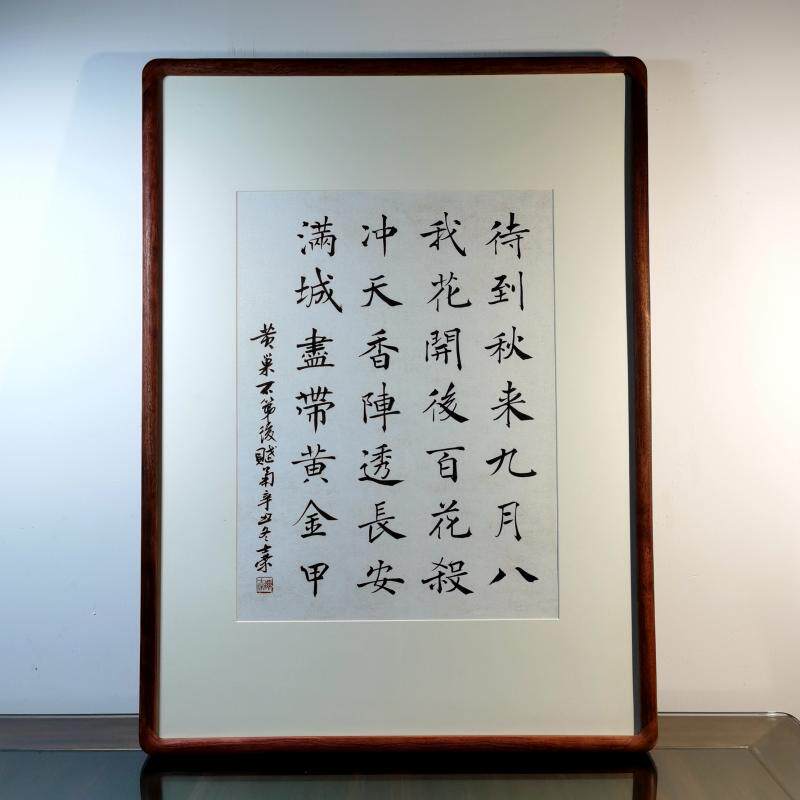 待到秋来九月八
我花開後百花殺
冲天香陣透長安
滿城盡帶黄金甲
黄巢不第後賦菊辛丑冬